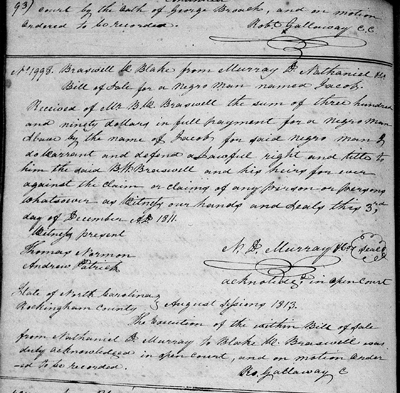 93) court by the oath of George Brouch, and on motion
ordered to be recorded. Robt Gallaway C.C
No. 1998. Braswell & Blake from Murray D. Nathaniel
Bill of Sale for a Negro Man named Jacob.
Received of Mr B. M. Braswell the sum of three hundred
and ninety dollars in full payment for a negro man
by the name of Jacob, for said negro man I
do warrant and defend a lawful right and title to
him the said B. M. Braswell and his heirs for ever
against the claim or claims of any person or persons
Whatsoever as Witness our hands and Seals this 3rd
day of December AD. 1811.
Witness present
Thomas Normon N. D. Murray (Seal)
Andrew Patrick
acknoldegd in open court
State of North Carolina
Rockingham County August Sessions 1813.
The Execution of the within Bill of Sale
from Nathaniel D. Murray to Blake M. Braswell was
duly acknowledged in open court, and on motion order
ed to be recorded.
Ro. Gallaway C